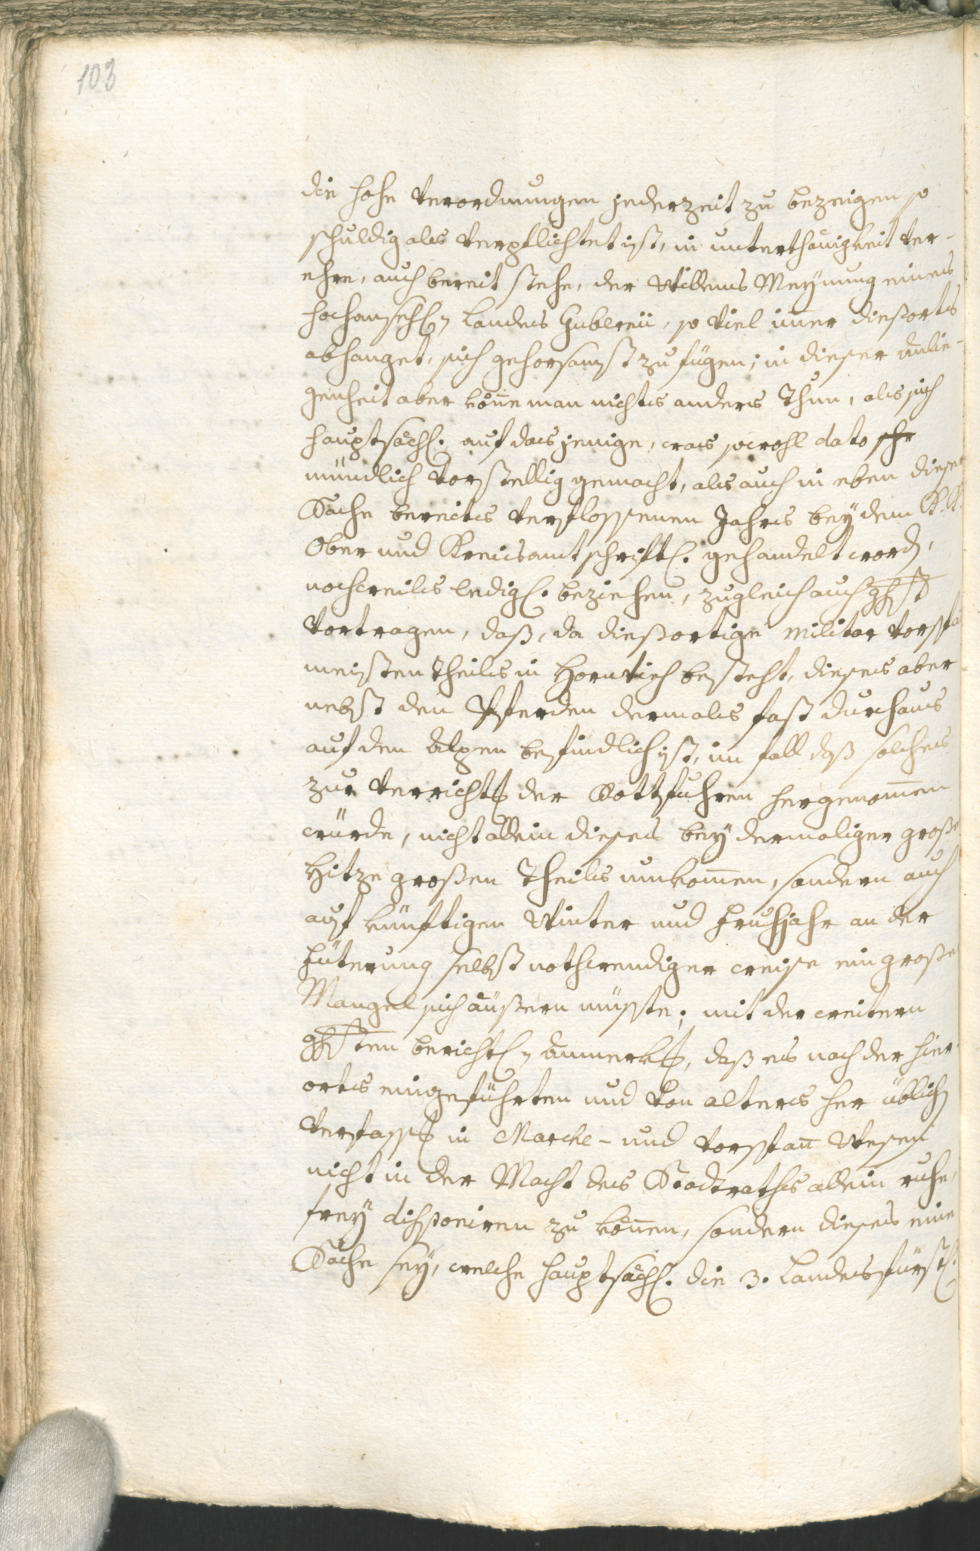 103
die hohe Verordnungen jederzeit zu bezeigen so
schuldig als verpflichtet ist, in unterthänigkeit ver-
ehre, auch bereit stehe, der Willens Meÿnung eines
hochansehl. Landes Gubernii, so viel im̄er diesorts
abhanget, sich gehorsamst zu fügen; in dieser Anlie-
genheit aber kön̄e man nichts anders Thun, als sich
hauptsächl. auf das jenige, was sowohl dato
mündlich vorstellig gemacht, als auch in eben dieser
Sache bereits verflossenen Jahrs beÿ dem K. K.
Ober und Kreisamt schriftl. gehandelt word,
nochweils ledigl. beziehen, zugleich auch
Vortragen, daß, da diesortige Militar Vorspa
meisten Theils in Hornvieh besteht, dieses aber
nebst den Pferden dermals fast durchaus
auf den Alpen befindlich ist, im fall deß solches
zur Verricht. der Rottfuhren hergenom̄en
würde, nicht allein dieses beÿ dermaliger große
Hitze großen Theils umkom̄en, sondern auch
auf künftigen Winter und Fruhjahr an der
Füterung selbst nothwendiger weise ein große
Mangel sich äußern müsste; mit der weitern
bericht. anmerk., daß es nach der hier
orts eingeführten und von alters her üblich
Verfass. in Marche- und Vorspan̄ Wesen
nicht in der Macht des Stadtraths allein ruhe,
freÿ disponiren zu kön̄en, sondern dieses eine
Sache seÿ, welche hauptsächl. die 3. Landesfürstl.